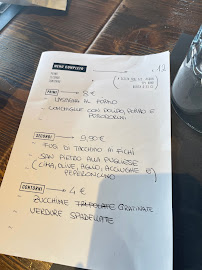 MENU COMPLETO
€ 12
PRIMI → 8 €
- LASAGNE AL FORNO
- CONCHIGLIE CON POLPO, PORRO E
POMODORINI
SECONDI → 9,90 €
- FESA DI TACCHINO AI FICHI
- SAN PIETRO ALLA PUGLIESE
(CIMA, OLIVE, AGLIO, ACCIUGHE E
PEPERONCINO)
CONTORNI → 4 €
- ZUCCHINE GRATINATE
- VERDURE SPADELLATE